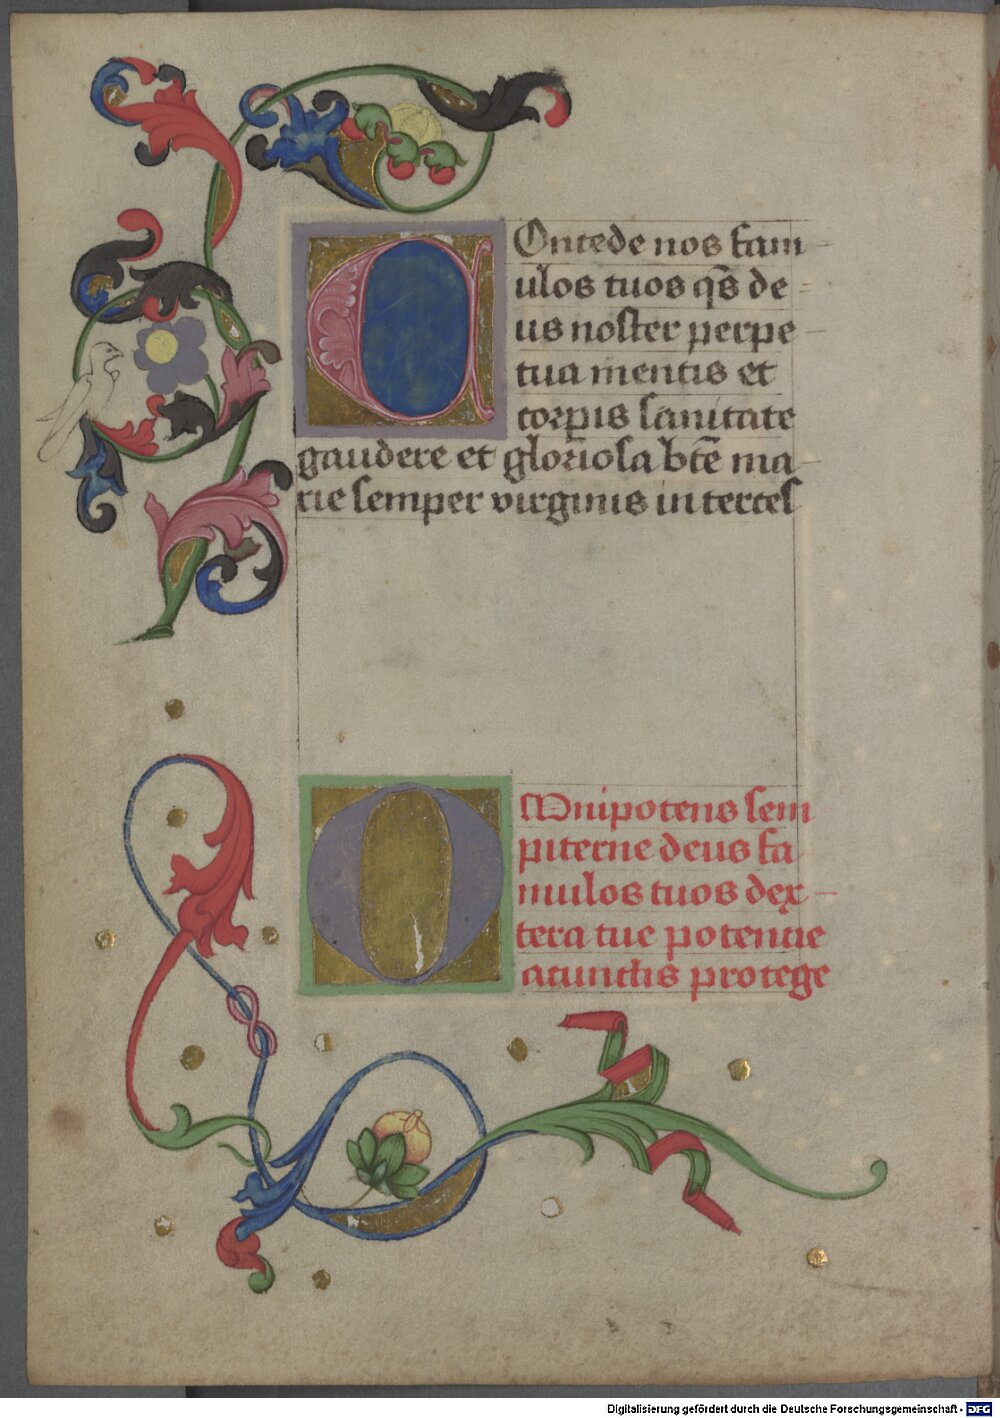 C Oncede nos fam-
ulos tuos qs̄ de=
us noster perpe-
tua mentis et
corpis sanitate
gaudere et gloriosa btē ma-
rie semper virginis in terces
O Mnipotens sem
piterne deus fa
mulos tuos dex-
tera tue potencie
acunctis protege
Digitalisierung gefördert durch die Deutsche Forschungsgemeinschaft - DFG